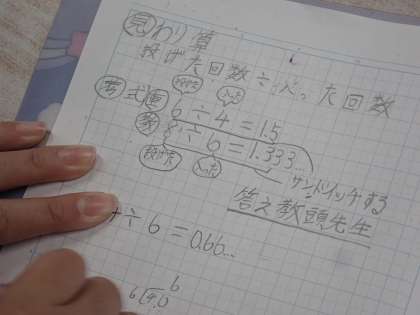 見 わり算
投げた回数÷入った回数
考 式 運 6÷4=1.5
教 8÷6=1.333
投げた 入った
サンドイッチする
答え教頭先生
4÷6=0.66…
6
6 4.0